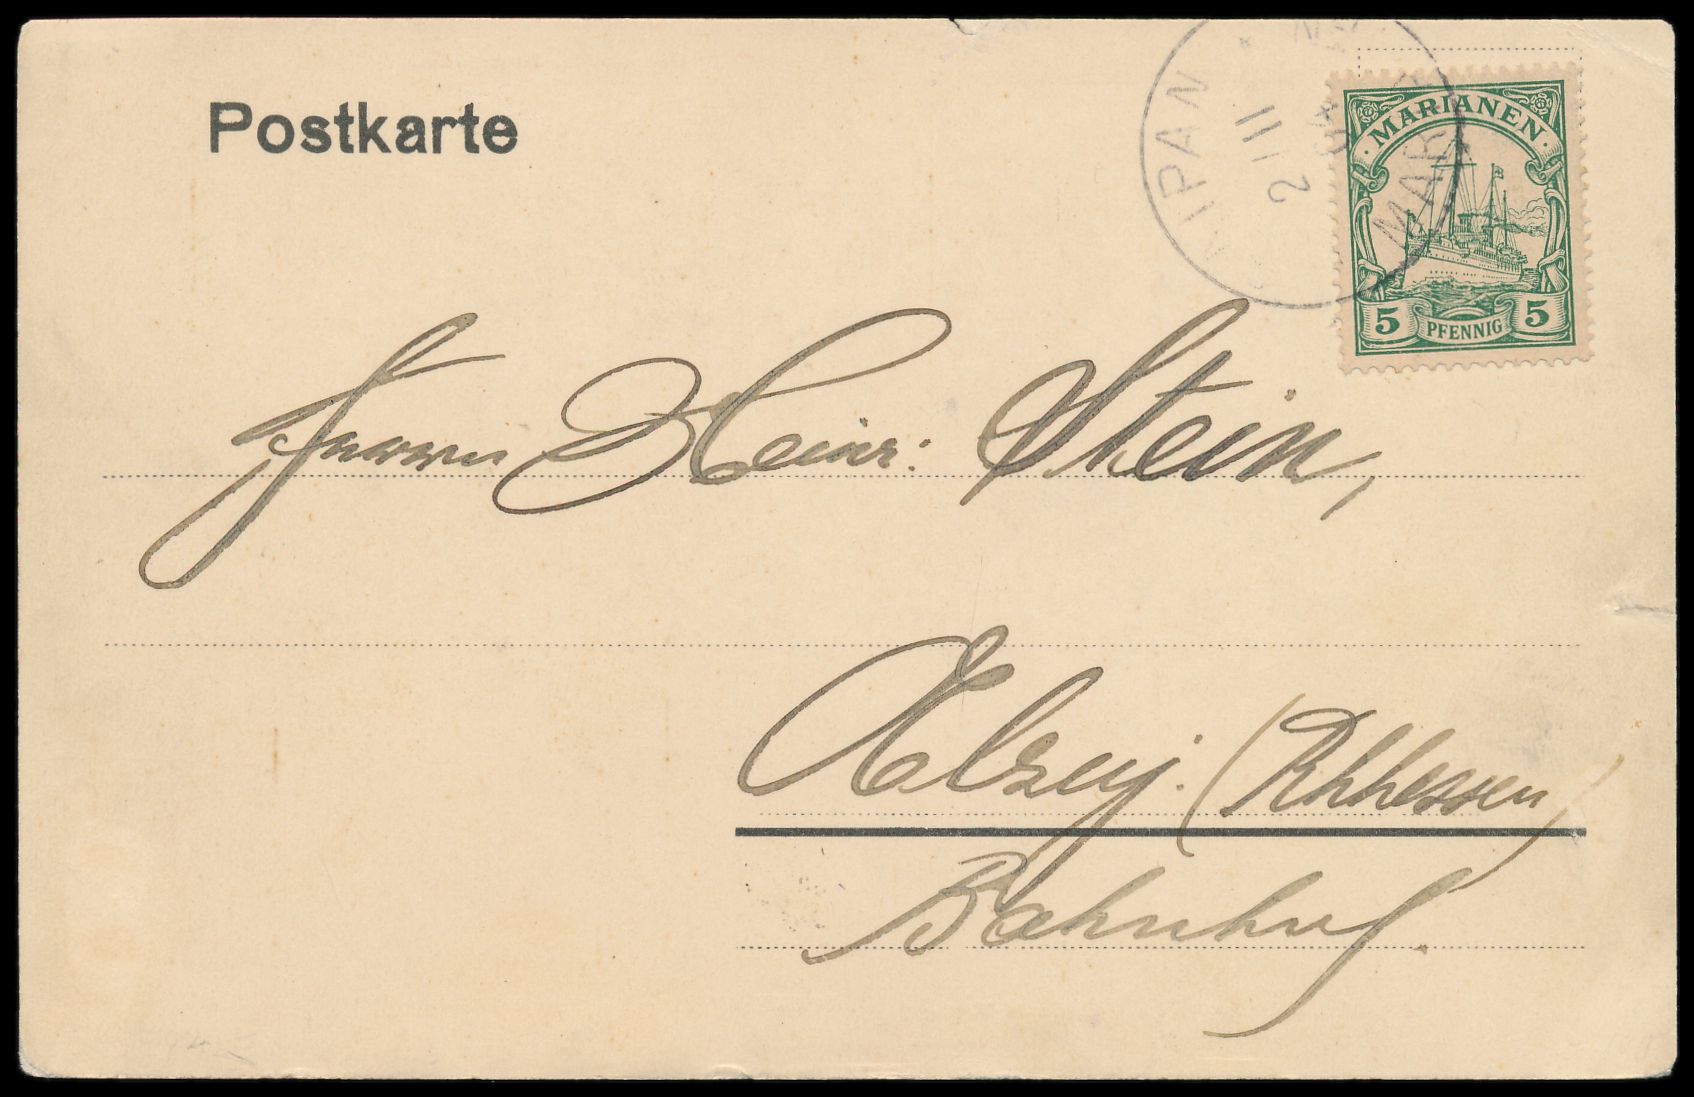 Postkarte
MARIANEN
5 PFENNIG 5
IPAN
2 III
MAR
Herrn Heinr: Stein,
Alzey. (Rhhessen)
Bahnhof.